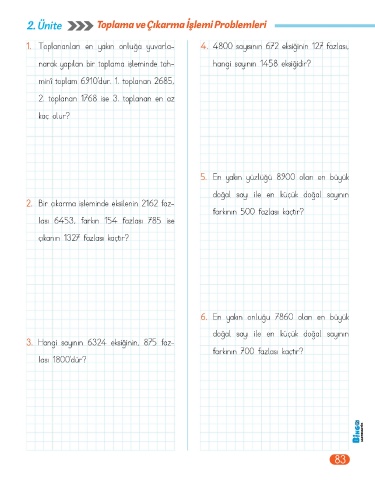 2. Ünite
Toplama ve Çıkarma İşlemi Problemleri
1. Toplananları en yakın onluğa yuvarla-
narak yapılan bir toplama işleminde tah-
minî toplam 6910'dur. 1. toplanan 2685,
2. toplanan 1768 ise 3. toplanan en az
kaç olur?
2. Bir çıkarma işleminde eksilenin 2162 faz-
lası 6453, farkın 154 fazlası 785 ise
çıkanın 1327 fazlası kaçtır?
3. Hangi sayının 6324 eksiğinin, 875 faz-
lası 1800'dür?
4. 4800 sayısının 672 eksiğinin 127 fazlası,
hangi sayının 1458 eksiğidir?
5. En yakın yüzlüğü 8900 olan en büyük
doğal sayı ile en küçük doğal sayının
farkının 500 fazlası kaçtır?
6. En yakın onluğu 7860 olan en büyük
doğal sayı ile en küçük doğal sayının
farkının 700 fazlası kaçtır?
Bingo
83